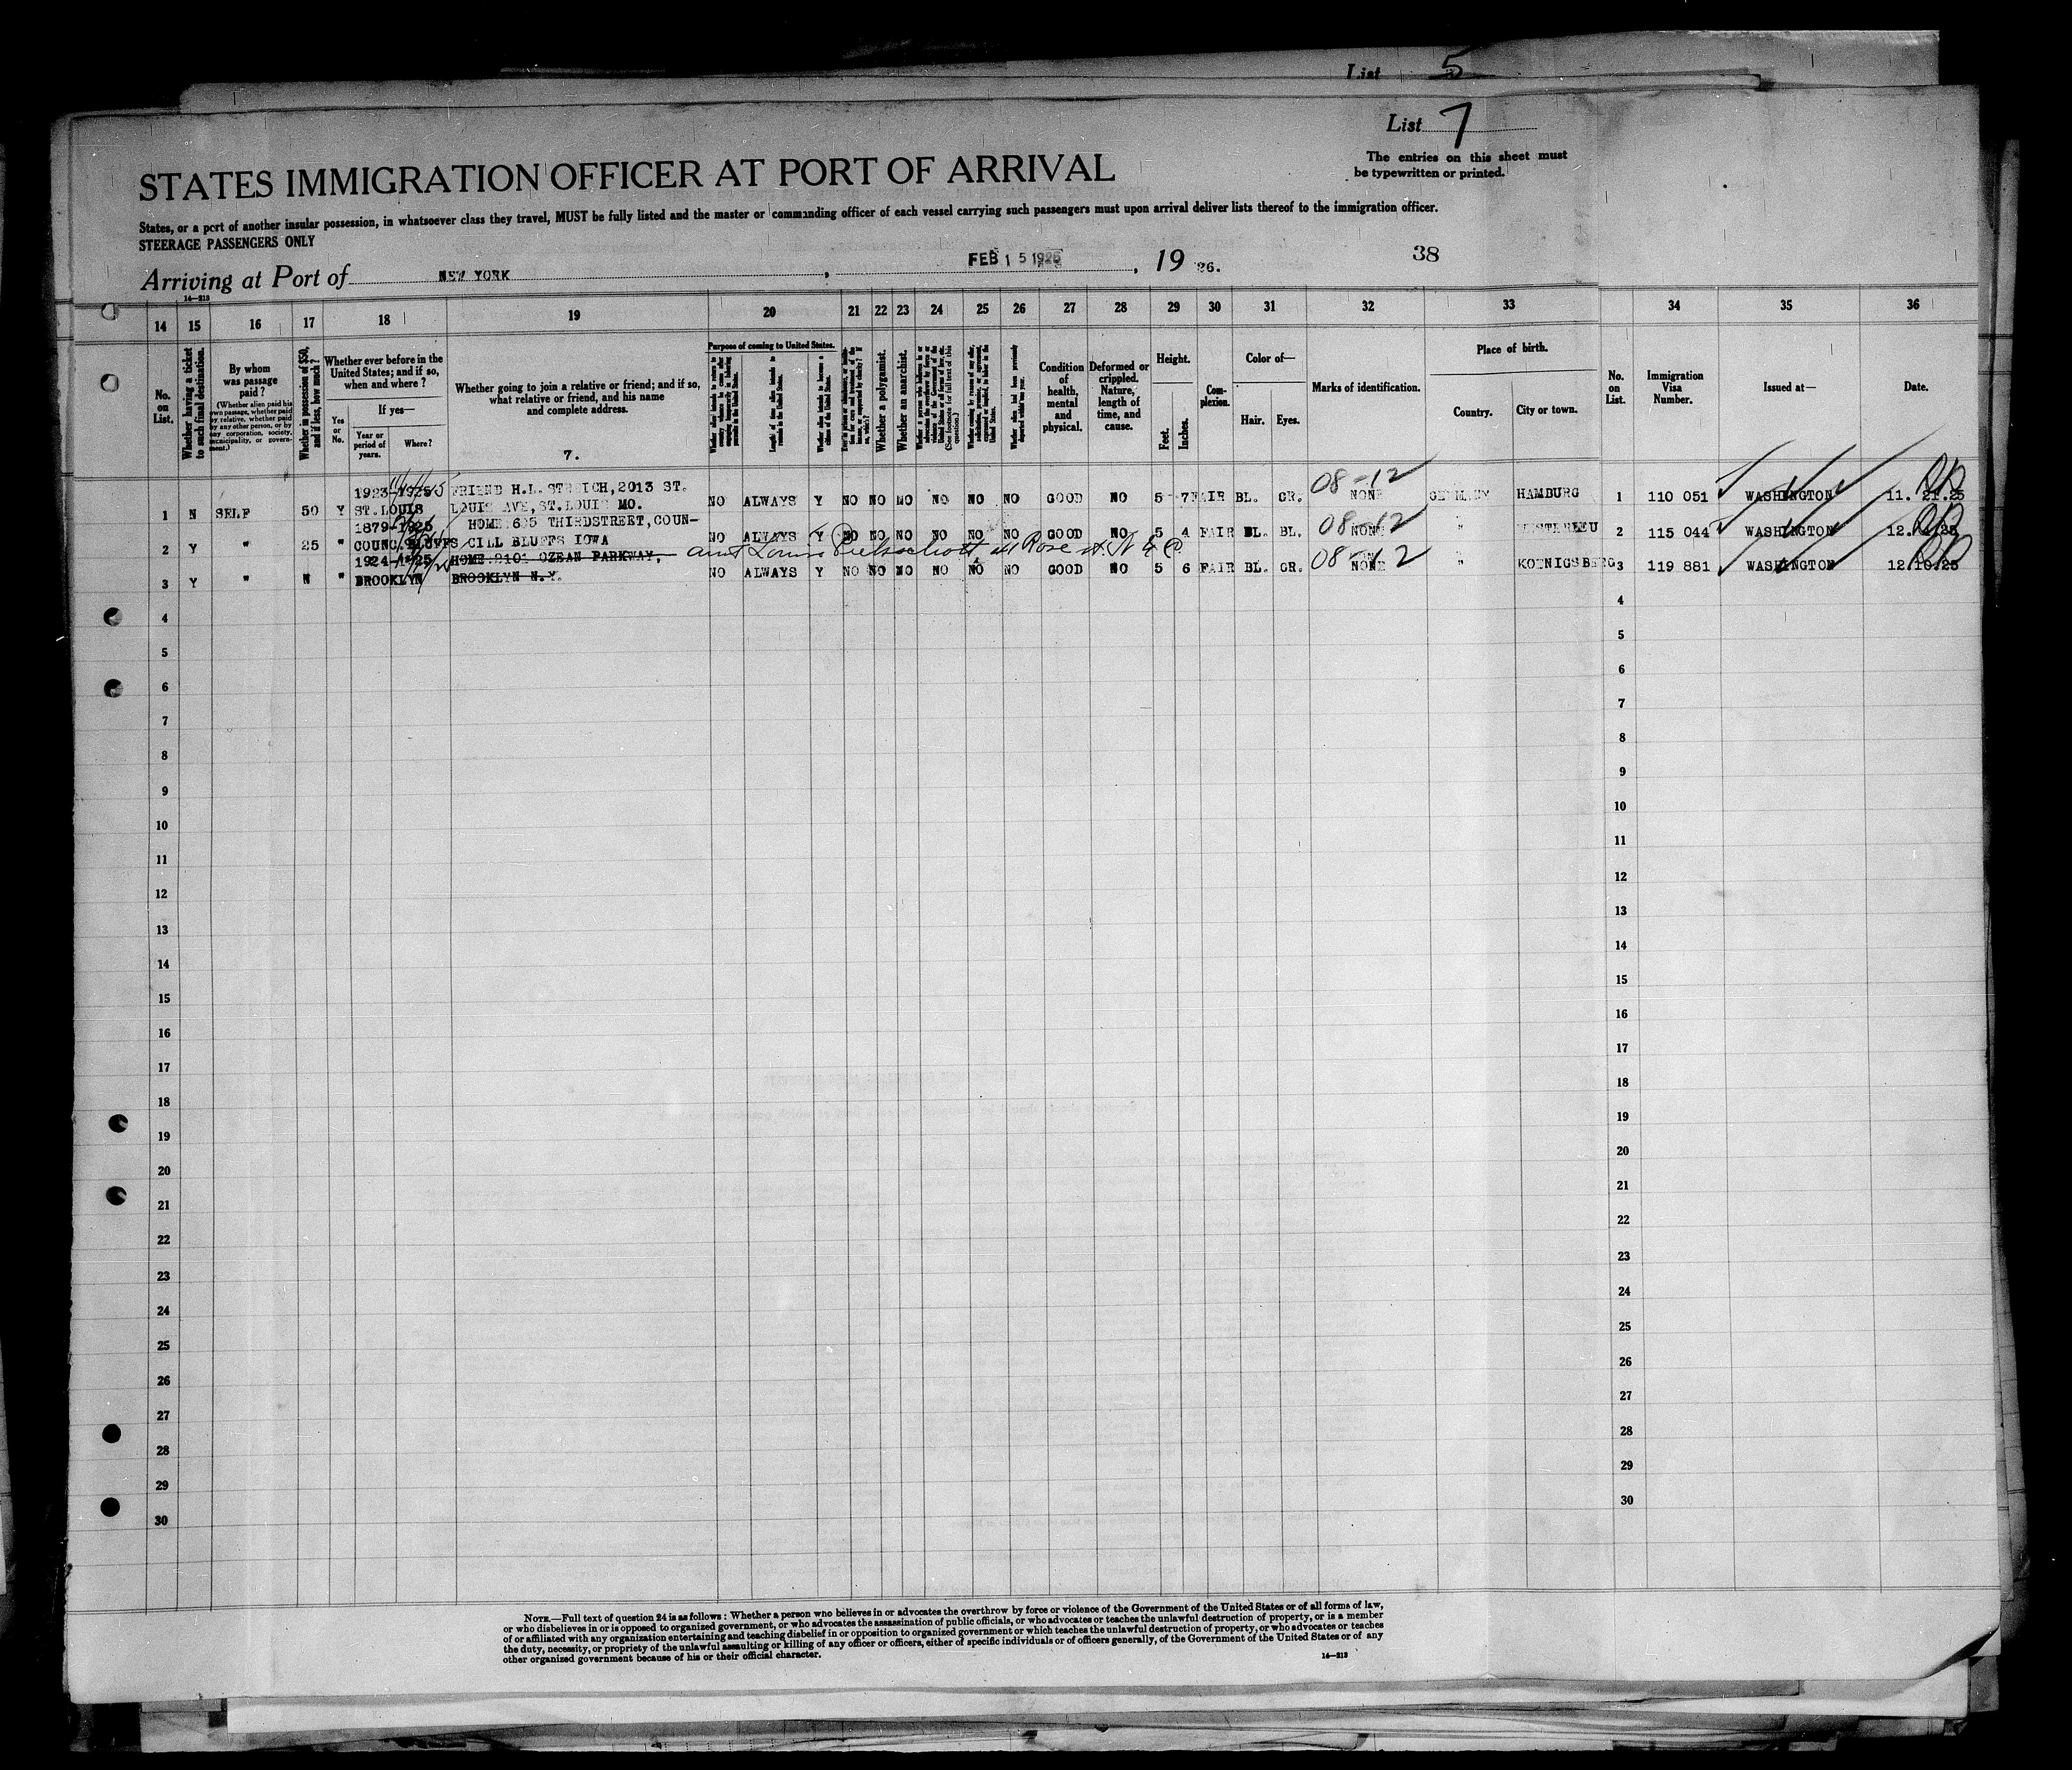 List 5
List 7
The entries on this sheet must
be typewritten or printed.
STATES IMMIGRATION OFFICER AT PORT OF ARRIVAL
States, or a port of another insular possession, in whatsoever class they travel, MUST be fully listed and the master or commanding officer of each vessel carrying such passengers must upon arrival deliver lists thereof to the immigration officer.
STEERAGE PASSENGERS ONLY
Arriving at Port of NEW YORK, FEB 15 1926, 19 26.
38
14—213
14 15 16 17 18 19 20 21 22 23 24 25 26 27 28 29 30 31 32 33 34 35 36
No. on List.
Whether having a ticket to such final destination.
By whom was passage paid?
(Whether alien paid his own passage, whether paid by relative, whether paid by any other person, or by any corporation, society, municipality, or government.)
Whether in possession of $50, and if less, how much?
Whether ever before in the United States; and if so, when and where?
Yes or No.
If yes—
Year or period of years.
Where?
Whether going to join a relative or friend; and if so, what relative or friend, and his name and complete address.
7.
Purpose of coming to United States.
Whether alien intends to return to country whence he came after engaging temporarily in laboring pursuits in the United States.
Length of time alien intends to remain in the United States.
Whether alien intends to become a citizen of the United States.
Whether a polygamist.
Whether an anarchist.
(See footnote for full text of this question.)
Whether alien had been previously deported within one year.
Condition of health, mental and physical.
Deformed or crippled. Nature, length of time, and cause.
Height.
Feet.
Inches.
Complexion.
Color of—
Hair.
Eyes.
Marks of identification.
Place of birth.
Country.
City or town.
No. on List.
Immigration Visa Number.
Issued at—
Date.
1 N SELF 50 Y 1923-1925 ST.LOUIS FRIEND H.L. STREICH, 2013 ST. LOUIS AVE, ST.LOUIS MO. NO ALWAYS Y NO NO NO NO NO NO GOOD NO 5 7 FAIR BL. GR. 08-12 NONE GERMANY HAMBURG 1 110 051 WASHINGTON 11. 21.25
2 Y " 25 " 1879-1925 COUNC.BLUFFS HOME 605 THIRDSTREET, COUN- CILL BLUFFS IOWA NO ALWAYS Y NO NO NO NO NO NO GOOD NO 5 4 FAIR BL. BL. 08-12 NONE " 2 115 044 WASHINGTON
3 Y " N " 1924-1925 BROOKLYN HOME 2101 OZEAN PARKWAY, BROOKLYN N.Y. aunt Rose st. N Y C NO ALWAYS Y NO NO NO NO NO NO GOOD NO 5 6 FAIR BL. GR. 08-12 NONE " KOENIGSBERG 3 119 881 WASHINGTON 12.10.25
4 4
5 5
6 6
7 7
8 8
9 9
10 10
11 11
12 12
13 13
14 14
15 15
16 16
17 17
18 18
19 19
20 20
21 21
22 22
23 23
24 24
25 25
26 26
27 27
28 28
29 29
30 30
NOTE.—Full text of question 24 is as follows: Whether a person who believes in or advocates the overthrow by force or violence of the Government of the United States or of all forms of law,
or who disbelieves in or is opposed to organized government, or who advocates the assassination of public officials, or who advocates or teaches the unlawful destruction of property, or is a member
of or affiliated with any organization entertaining and teaching disbelief in or opposition to organized government or which teaches the unlawful destruction of property, or who advocates or teaches
the duty, necessity, or propriety of the unlawful assaulting or killing of any officer or officers, either of specific individuals or of officers generally, of the Government of the United States or of any
other organized government because of his or their official character.
14—213